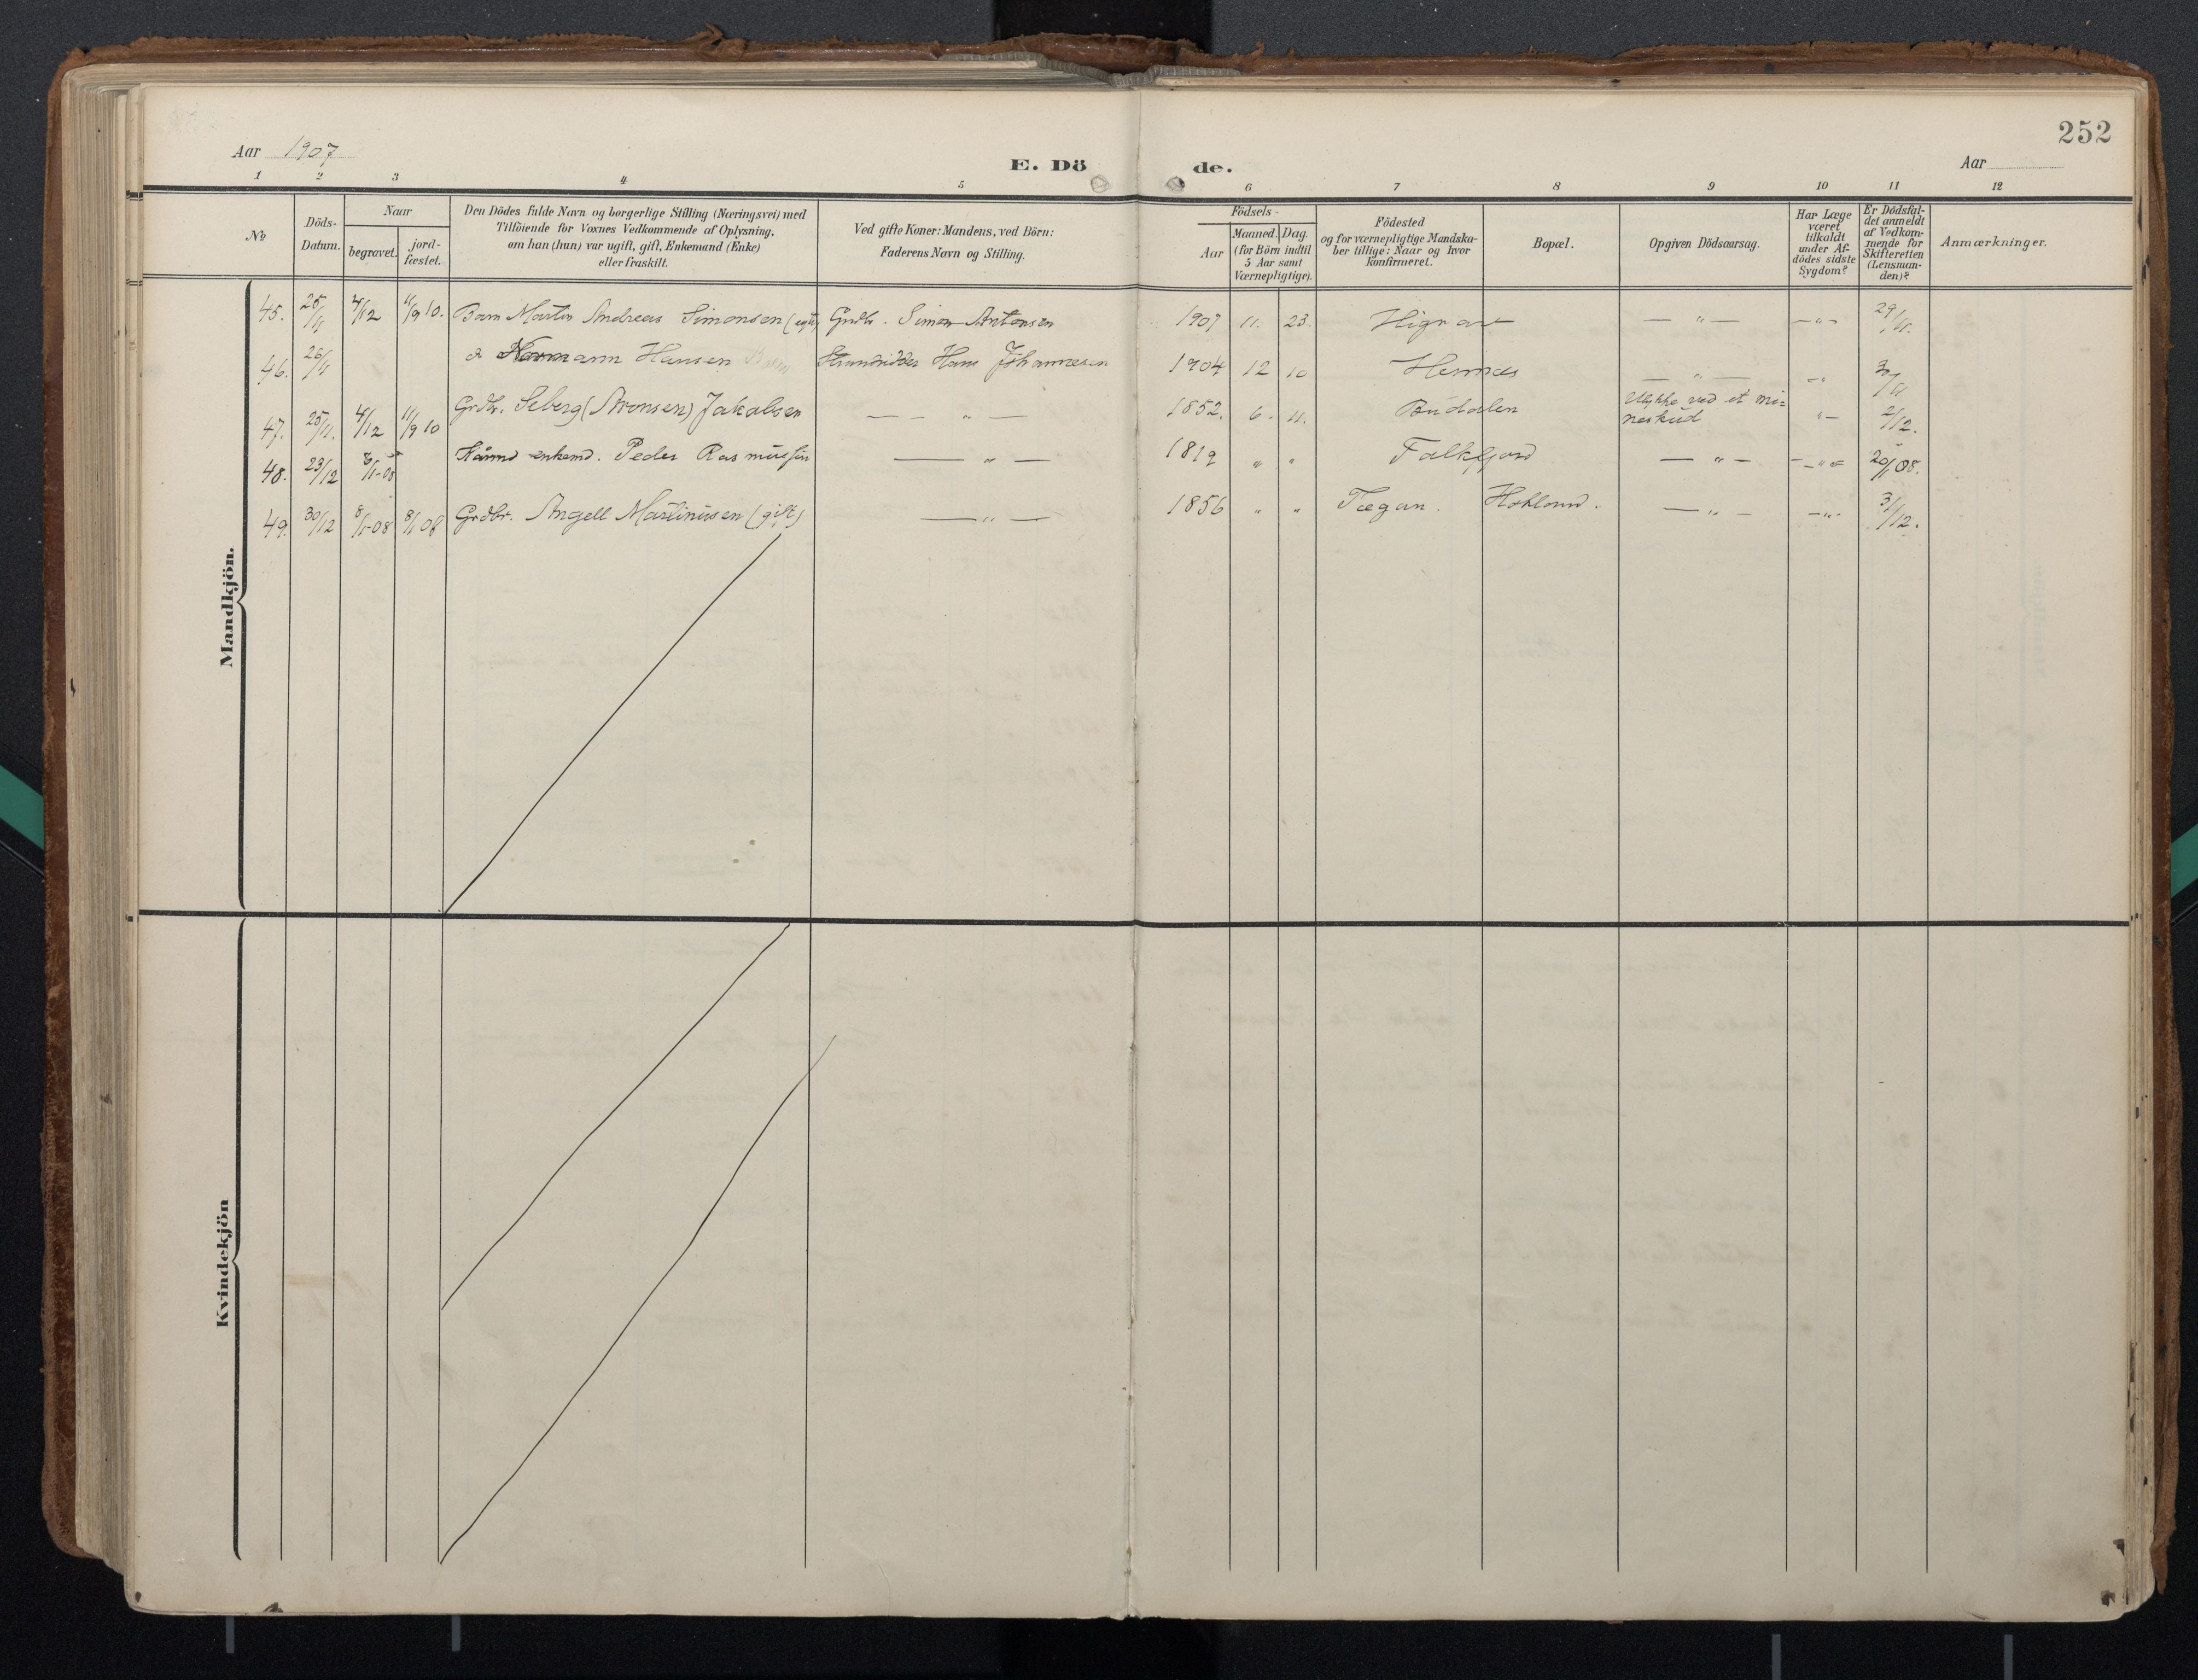 252
Aar 1907
E. Dö de.
Aar
1 2 3 4 5 6 7 8 9 10 11 12
№
Döds-Datum.
Naar
begravet.
jord-fæstet.
Den Dödes fulde Navn og borgerlige Stilling (Næringsvei) med
Tilföiende for Voxnes Vedkommende af Oplysning,
om han (hun) var ugift, gift, Enkemand (Enke)
eller fraskilt.
Ved gifte Koner: Mandens, ved Börn:
Faderens Navn og Stilling.
Födsels-
Aar
Maaned. Dag.
(for Börn indtil
5 Aar samt
Værnepligtige).
Födested
og for værnepligtige Mandska-
ber tillige: Naar og hvor
konfirmeret.
Bopæl.
Opgiven Dödsaarsag.
Har Læge
været
tilkaldt
under Af-
dödes sidste
Sygdom?
Er Dödsfal-
det anmeldt
af Vedkom-
mende for
Skifteretten
(Lensman-
den)?
Anmærkninger.
Mandkjön.
45. 25/11 4/12 11/9 10. Barn Martin Andreas Simonsen (egte) Grdbr. Simon Antonsen 1907 11. 23. Hignar — " — — " — 29/11.
46. 26/11 Normann Hansen Hans Johannesen 1904 12 10 Hennes — " — — "
47. 25/11. 4/12 11/9 10 Grdbr. Seberg (Aronsen) Jakobsen — — " — 1852. 6. 11. Büdalen Ulykke ved et mi=
neskud " — 2/12.
48. 23/12 8/1-08 enkemd. Peder Rasmussen — " — 1819 " " Falkfjord — " — — " — 20/1 08.
49. 30/12 8/1-08 8/1 08 Grdbr. Angell Martinusen (gift) — " — 1856 " " Tægan. Hokland. — " — — " — 31/12.
Kvindekjön